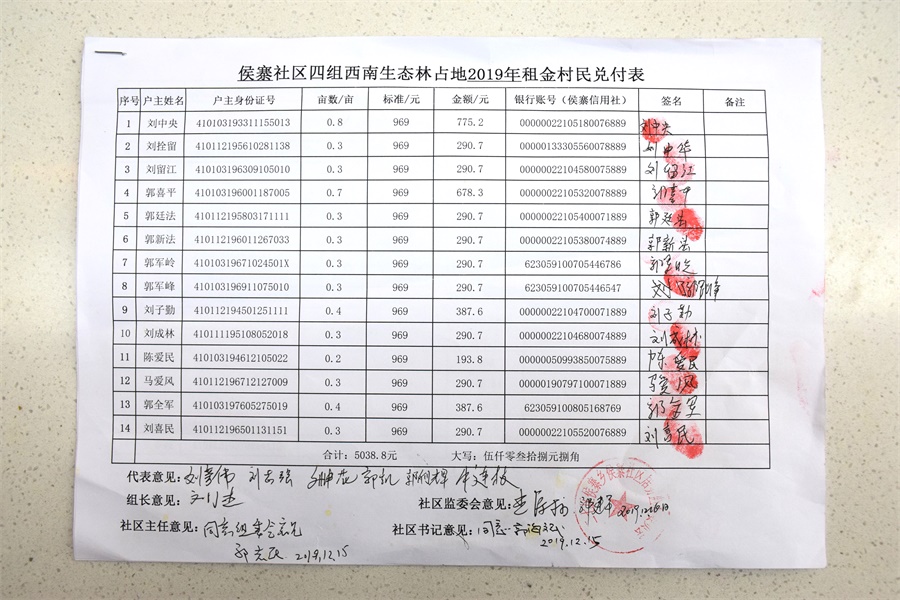 侯寨社区四组西南生态林占地2019年租金村民兑付表
序号 户主姓名 户主身份证号 亩数/亩 标准/元 金额/元 银行账号（侯寨信用社） 签名 备注
1 刘中央 410103193311155013 0.8 969 775.2 00000022105180076889 刘中央
2 刘拴留 410112195610281138 0.3 969 290.7 00000133305560078889 刘中华
3 刘留江 410103196309105010 0.3 969 290.7 00000022104580075889 刘留江
4 郭喜平 410103196001187005 0.7 969 678.3 00000022105320078889 郭喜平
5 郭廷法 410112195803171111 0.3 969 290.7 00000022105400071889 郭廷法
6 郭新法 410112196011267033 0.3 969 290.7 00000022105380074889 郭新法
7 郭军岭 41010319671024501X 0.3 969 290.7 623059100705446786
8 郭军峰 410103196911075010 0.3 969 290.7 623059100705446547
9 刘子勤 410112194501251111 0.4 969 387.6 00000022104700071889 刘子勤
10 刘成林 410111195108052018 0.3 969 290.7 00000022104680074889 刘成林
11 陈爱民 410103194612105022 0.2 969 193.8 00000050993850075889 陈爱民
12 马爱风 410112196712127009 0.3 969 290.7 00000190797100071889 马爱风
13 郭全军 410103197605275019 0.4 969 387.6 623059100805168769 郭全军
14 刘喜民 410112196501131151 0.3 969 290.7 00000022105520076889 刘喜民
合计：5038.8元 大写：伍仟零叁拾捌元捌角
代表意见：
组长意见：
社区监委会意见：
社区主任意见：同意组委会意见
社区书记意见：同意
2019.12.15
2019.12.15